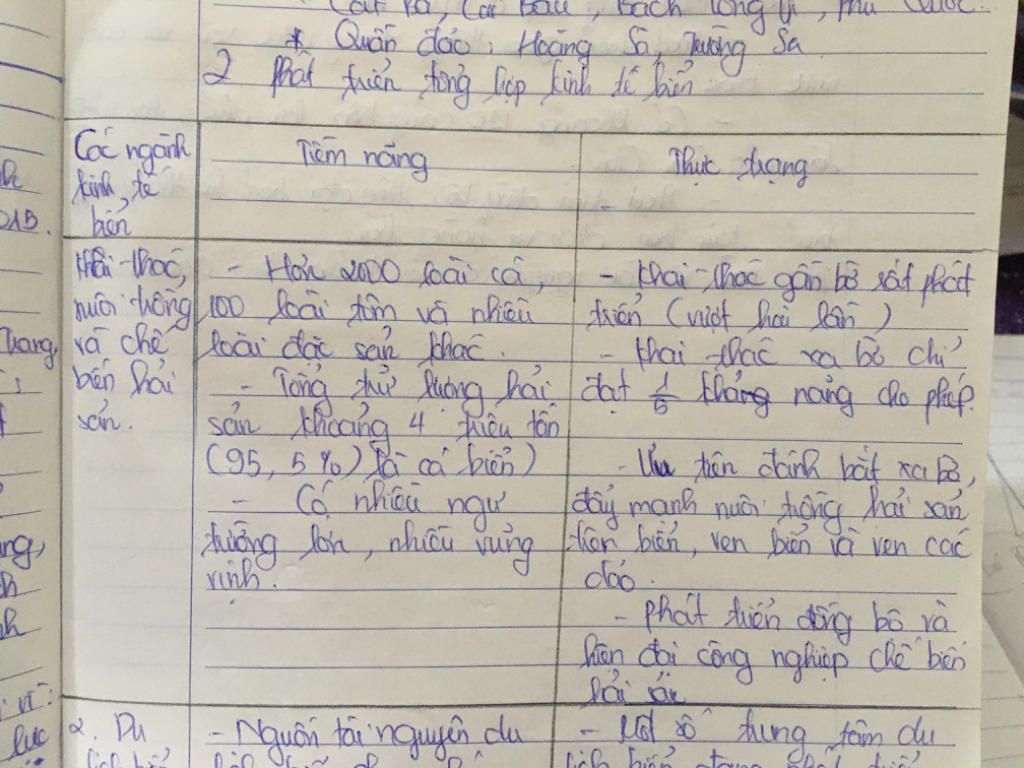 Cát Bà, Cái Bầu, Bạch Long Vĩ, Phú Quốc.
* Quần đảo: Hoàng Sa, Trường Sa
2 Phát triển tổng hợp kinh tế biển
Các ngành
kinh tế
biển
Tiềm năng
Thực trạng
Khai thác,
nuôi trồng
và chế
biến hải
sản.
- Hơn 2000 loài cá,
100 loài tôm và nhiều
loài đặc sản khác.
- Tổng trữ lượng hải
sản khoảng 4 triệu tấn
(95,5%) là cá biển)
- Có nhiều ngư
trường lớn, nhiều vũng
vịnh.
- Khai thác gần bờ rất phát
triển (vượt hai lần)
- Khai thác xa bờ chỉ
đạt 1/5 khả năng cho phép.
- Ưu tiên đánh bắt xa bờ,
đẩy mạnh nuôi trồng hải sản
trên biển, ven biển và ven các
đảo.
- Phát triển đồng bộ và
hiện đại công nghiệp chế biến
hải sản
2. Du
lịch biển
- Nguồn tài nguyên du
- Một số trung tâm du
lịch biển đang phát triển